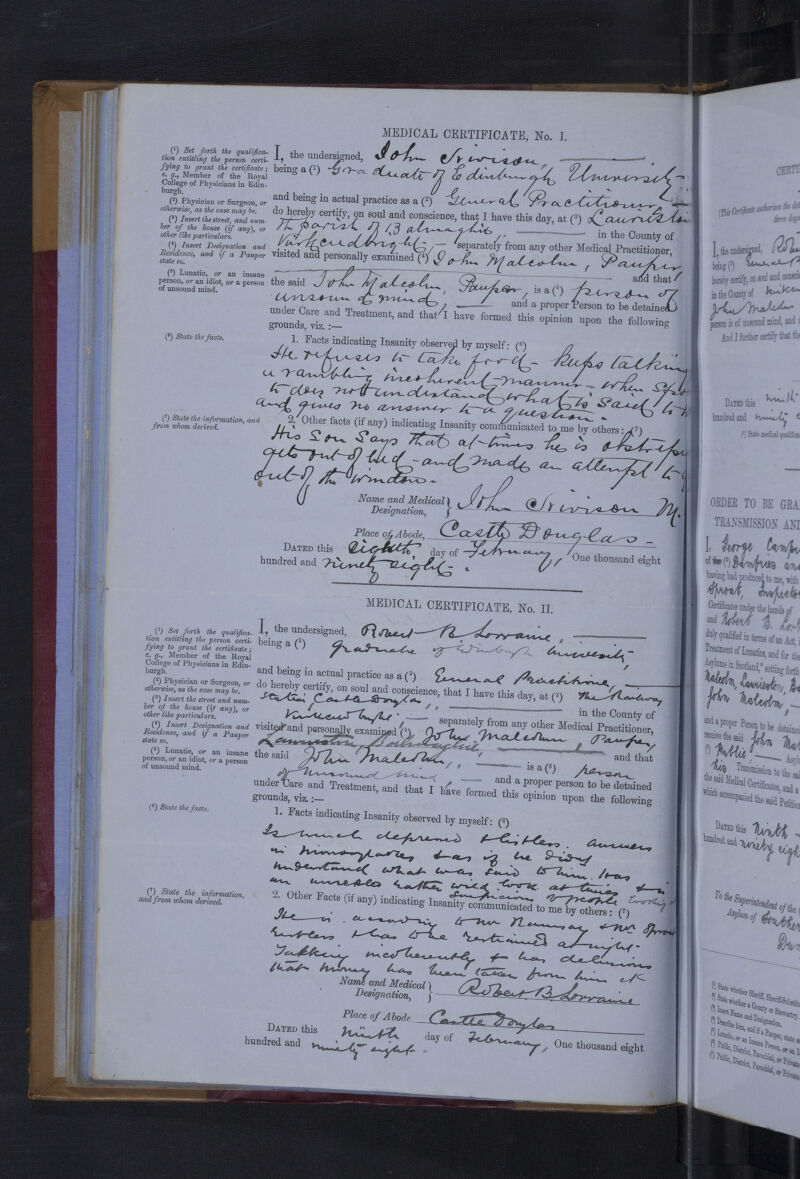 MEDICAL CERTIFICATE, No. I.
(1) Set forth the qualifica-
tion entitling the person certi-
fying to grant the certificate;
e. g., Member of the Royal
College of Physicians in Edin-
burgh.
(2) Physician or Surgeon, or
otherwise, as the case may be.
(3) Insert the street, and num-
ber of the house (if any), or
other like particulars.
(4) Insert Designation and
Residence, and if a Pauper
state so.
(5) Lunatic, or an insane
person, or an idiot, or a person
of unsound mind.
I, the undersigned, John Nivison,
being a (1) Graduate of Edinburgh University
and being in actual practice as a (2) General Practitioner
do hereby certify, on soul and conscience, that I have this day, at (3) Laurieston
The parish of Balmaghie, in the County of
Kirkcudbright, separately from any other Medical Practitioner,
visited and personally examined (4) John Malcolm, Pauper,
and that
the said John Malcolm, Pauper, is a (5) person of
unsound mind, and a proper Person to be detained
under Care and Treatment, and that I have formed this opinion upon the following
grounds, viz. :—
(6) State the facts.
1. Facts indicating Insanity observed by myself: (6)
He refuses to take food - keeps talking
a rambling incoherent manner - when
to does not understand what is said to
and gives no answer to a question.
(7) State the information, and
from whom derived.
2. Other facts (if any) indicating Insanity communicated to me by others: (7)
His Son says that at times he is
gets out of bed - and made an attempt to
out of the window.
Name and Medical Designation, John Nivison M.
Place of Abode, Castle Douglas
DATED this eighth day of February, One thousand eight
hundred and ninety eight.
MEDICAL CERTIFICATE, No. II.
(1) Set forth the qualifica-
tion entitling the person certi-
fying to grant the certificate;
e. g., Member of the Royal
College of Physicians in Edin-
burgh.
(2) Physician or Surgeon, or
otherwise, as the case may be.
(3) Insert the street and num-
ber of the house (if any), or
other like particulars.
(4) Insert Designation and
Residence, and if a Pauper
state so.
(5) Lunatic, or an insane
person, or an idiot, or a person
of unsound mind.
I, the undersigned, Robert B Lorraine,
being a (1) graduate of Edinburgh University,
and being in actual practice as a (2) General Practitioner,
do hereby certify, on soul and conscience, that I have this day, at (3) The Railway
Station Castle Douglas, in the County of
Kirkcudbright, separately from any other Medical Practitioner,
visited and personally examined (4) John Malcolm, Pauper,
Laurieston Balmaghie, and that
the said John Malcolm, is a (5) person
of unsound mind, and a proper person to be detained
under Care and Treatment, and that I have formed this opinion upon the following
grounds, viz. :—
(6) State the facts.
1. Facts indicating Insanity observed by myself: (6)
Is much depressed & listless. answers
in monosyllables & as if he didn't
understand what was said to him. Has
an rather wild look at times
suspicious of people
(7) State the information,
and from whom derived.
2. Other Facts (if any) indicating Insanity communicated to me by others: (7)
He is according to Mr & Mr Sproat
restless & has to be restrained at night.
Talking incoherently & has delusions
that money has been taken from him
Name and Medical Designation, Robert B Lorraine
Place of Abode Castle Douglas
DATED this Ninth day of February, One thousand eight
hundred and ninety eight.
I, the undersigned,
being (1)
hereby certify, on soul and
in the County of
John Malcolm
person is of unsound mind, and
And I further certify that
DATED this ninth
hundred and ninety
ORDER TO BE
TRANSMISSION
I, George
of the (1) Dumfries and
having had produced to me, with
Sproat, Inspector
Certificates under the hands of
and Robert B.
duly qualified in terms of an Act,
Treatment of Lunatics, and for the
Asylums in Scotland," setting forth
Malcolm, Laurieston,
John Malcolm,
and a proper Person to be detained
receive the said John
Public,
his Transmission to the
the said Medical Certificates, and a
which accompanied the said Petition
DATED this Ninth
hundred and ninety eight
To the Superintendent of the
Asylum of Southern